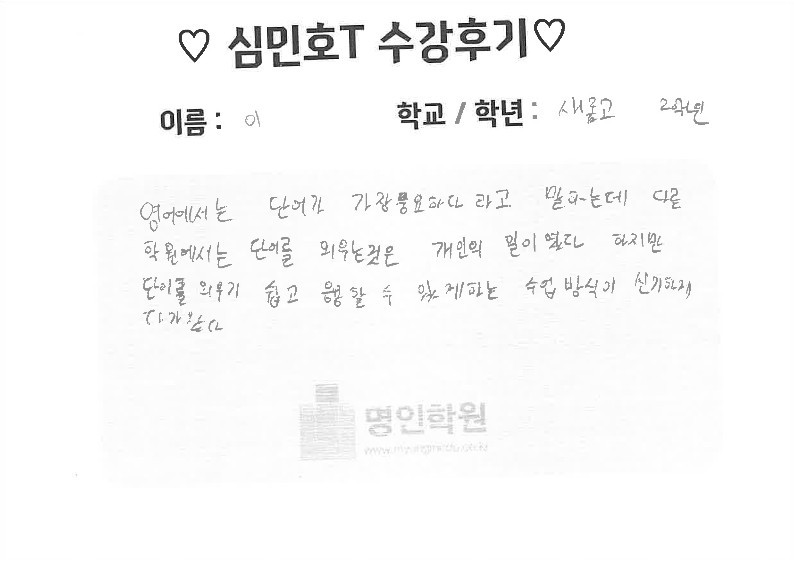 ♡ 심민호T 수강후기♡
이름 : 이 학교 / 학년 : 새롬고 2학년
영어에서는 단어가 가장중요하다 라고 말하는데 다른
학원에서는 단어를 외우는것은 개인의 일이 였다 하지만
단어를 외우기 쉽고 응용할 수 있게하는 수업 방식이 신기하게
다가왔다
명인학원